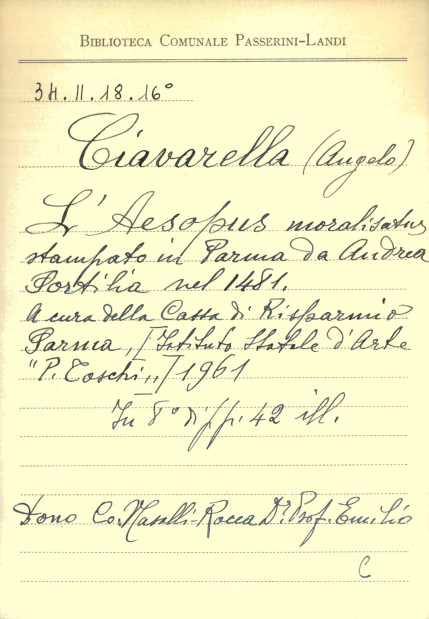 BIBLIOTECA COMUNALE PASSERINI-LANDI
34.II.18.16°
Ciavarella (Angelo)
L'Aesopus moralisatus
stampato in Parma da Andrea
Portilia nel 1481.
A cura della Cassa di Risparmio
Parma, [Istituto Statale d'Arte
"P. Toschi"] 1961
In 8° di pp. 42 ill.
Dono Co. Nasalli-Rocca Dr. Prof. Emilio
C